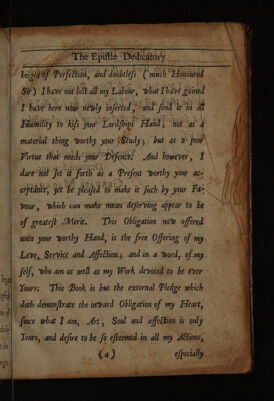 The Epistle Dedicatory
height of Perfection, and doubtless (much Honoured
Sir) I have not lost all my Labour, what I have gained
I have here now newly inserted, and send it in all
Humility to kiss your Lordships Hand; not as a
material thing worthy your Study; but as a poor
Virtue that needs your Defence. And however, I
dare not set it forth as a Present worthy your ac-
ceptance, yet be pleased to make it such by your Fa-
vour, which can make mean deserving appear to be
of greatest Merit. This Obligation now offered
unto your worthy Hand, is the free Offering of my
Love, Service and Affection; and in a word, of my
self, who am as well as my Work devoted to be ever
Yours: This Book is but the external Pledge which
doth demonstrate the inward Obligation of my Heart,
since what I am, Art, Soul and affection is only
Yours, and desire to be so esteemed in all my Actions,
(a) especially